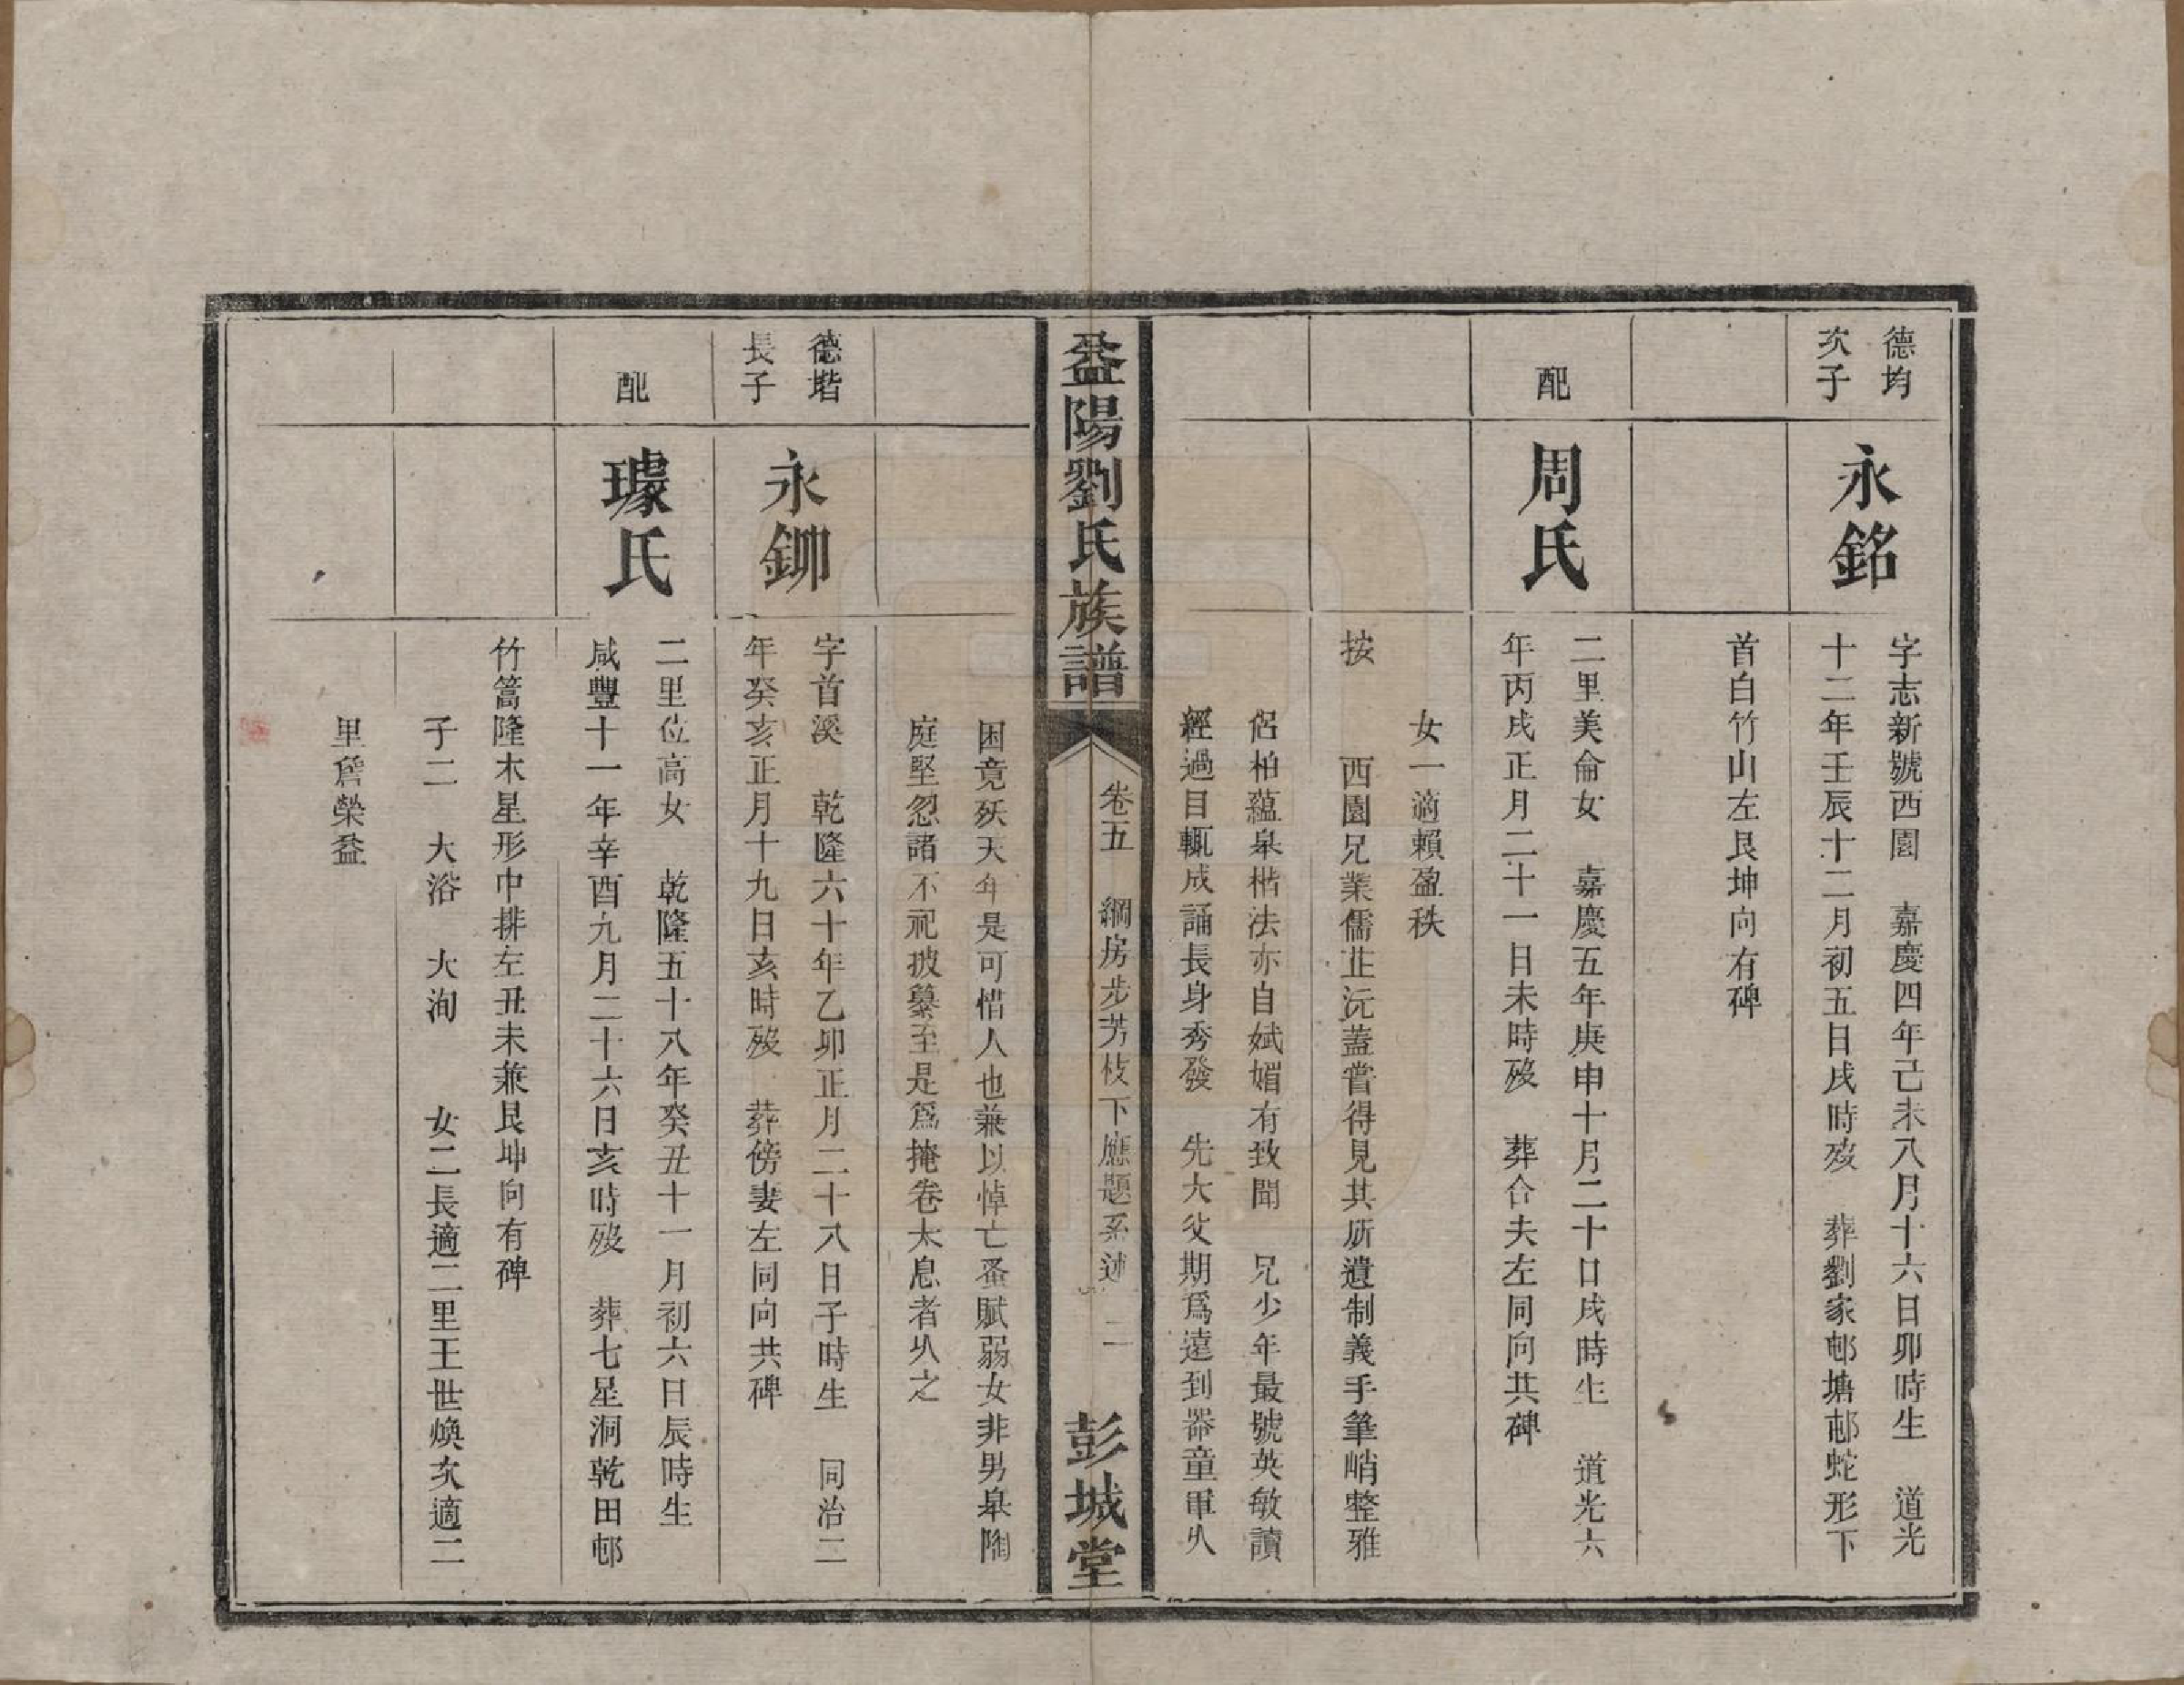 德均
次子
永銘
字志新號西園　嘉慶四年己未八月十六日卯時生　道光
十二年壬辰十二月初五日戌時歿　葬劉家邨塘邨蛇形下
首白竹山左艮坤向有碑
配
周氏
二里美侖女　嘉慶五年庚申十月二十日戌時生　道光六
年丙戌正月二十一日未時歿　葬合夫左同向共碑
女一適賴盈秩
按　西園兄業儒芷沅蓋嘗得見其所遺制義手筆峭整雅
侶柏蘊臬楷法亦自娬媚有致聞　兄少年最號英敏讀
經過目輒成誦長身秀發　先大父期爲遠到器童軍久
益陽劉氏族譜
卷五　綱房步芳枝下應題系述　二
彭城堂
困竟殀天年是可惜人也兼以悼亡蚤賦弱女非男皋陶
庭堅忽諸不祀披纂至是爲掩卷太息者久之
德堦
長子
永鉚
字首溪　乾隆六十年乙卯正月二十八日子時生　同治二
年癸亥正月十九日亥時歿　葬傍妻左同向共碑
配
璩氏
二里位高女　乾隆五十八年癸丑十一月初六日辰時生
咸豐十一年辛酉九月二十六日亥時歿　葬七星洞乾田邨
竹篙隆木星形中排左丑未兼艮坤向有碑
子二　大浴　大洵　女二長適二里王世煥次適二
里詹榮益